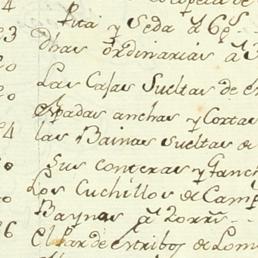 Pita y Seda á 6 ps
dhas ordinarias á 3
Las Cajas Sueltas de e
spadas anchas y Cortas
las Bainas sueltas de
sus conteras y Ganch
Los Cuchillos de Camp
Baynas á 20 rrs
El par de estribos de Lom